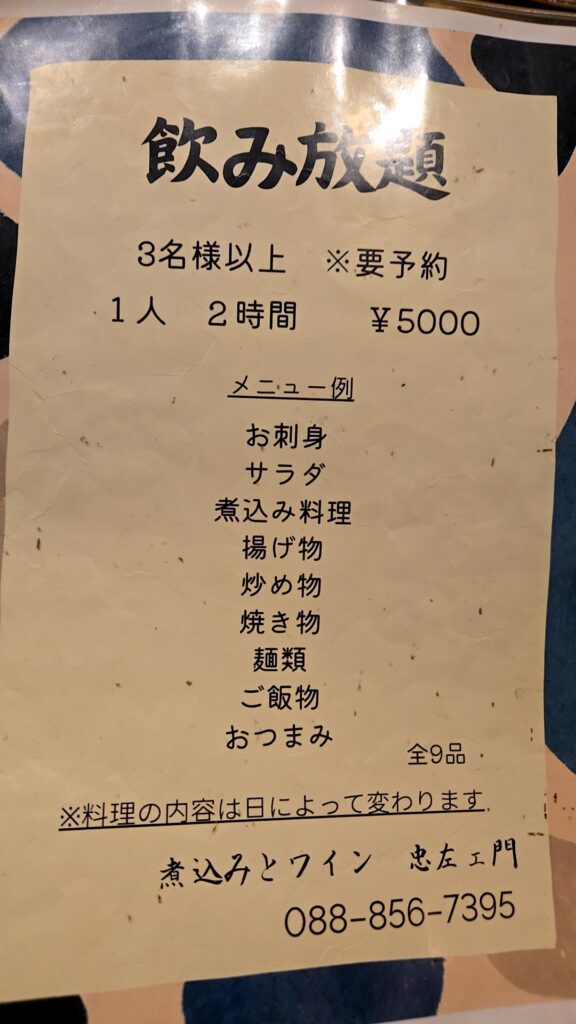 飲み放題
3名様以上　※要予約
1人　2時間　¥5000
メニュー例
お刺身
サラダ
煮込み料理
揚げ物
炒め物
焼き物
麺類
ご飯物
おつまみ
全9品
※料理の内容は日によって変わります
煮込みとワイン　忠左ェ門
088-856-7395